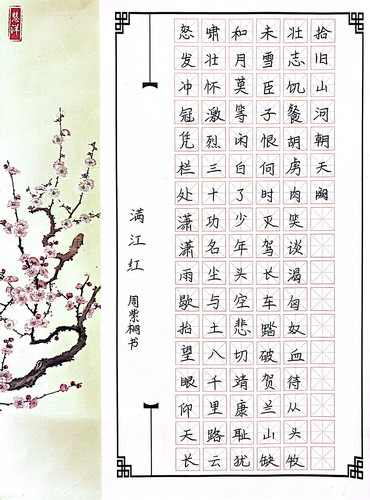 满江红
周紫桐书
怒发冲冠凭栏处潇潇雨歇抬望眼仰天长
啸壮怀激烈三十功名尘与土八千里路云
和月莫等闲白了少年头空悲切靖康耻犹
未雪臣子恨何时灭驾长车踏破贺兰山缺
壮志饥餐胡虏肉笑谈渴匈奴血待从头牧
拾旧山河朝天阙